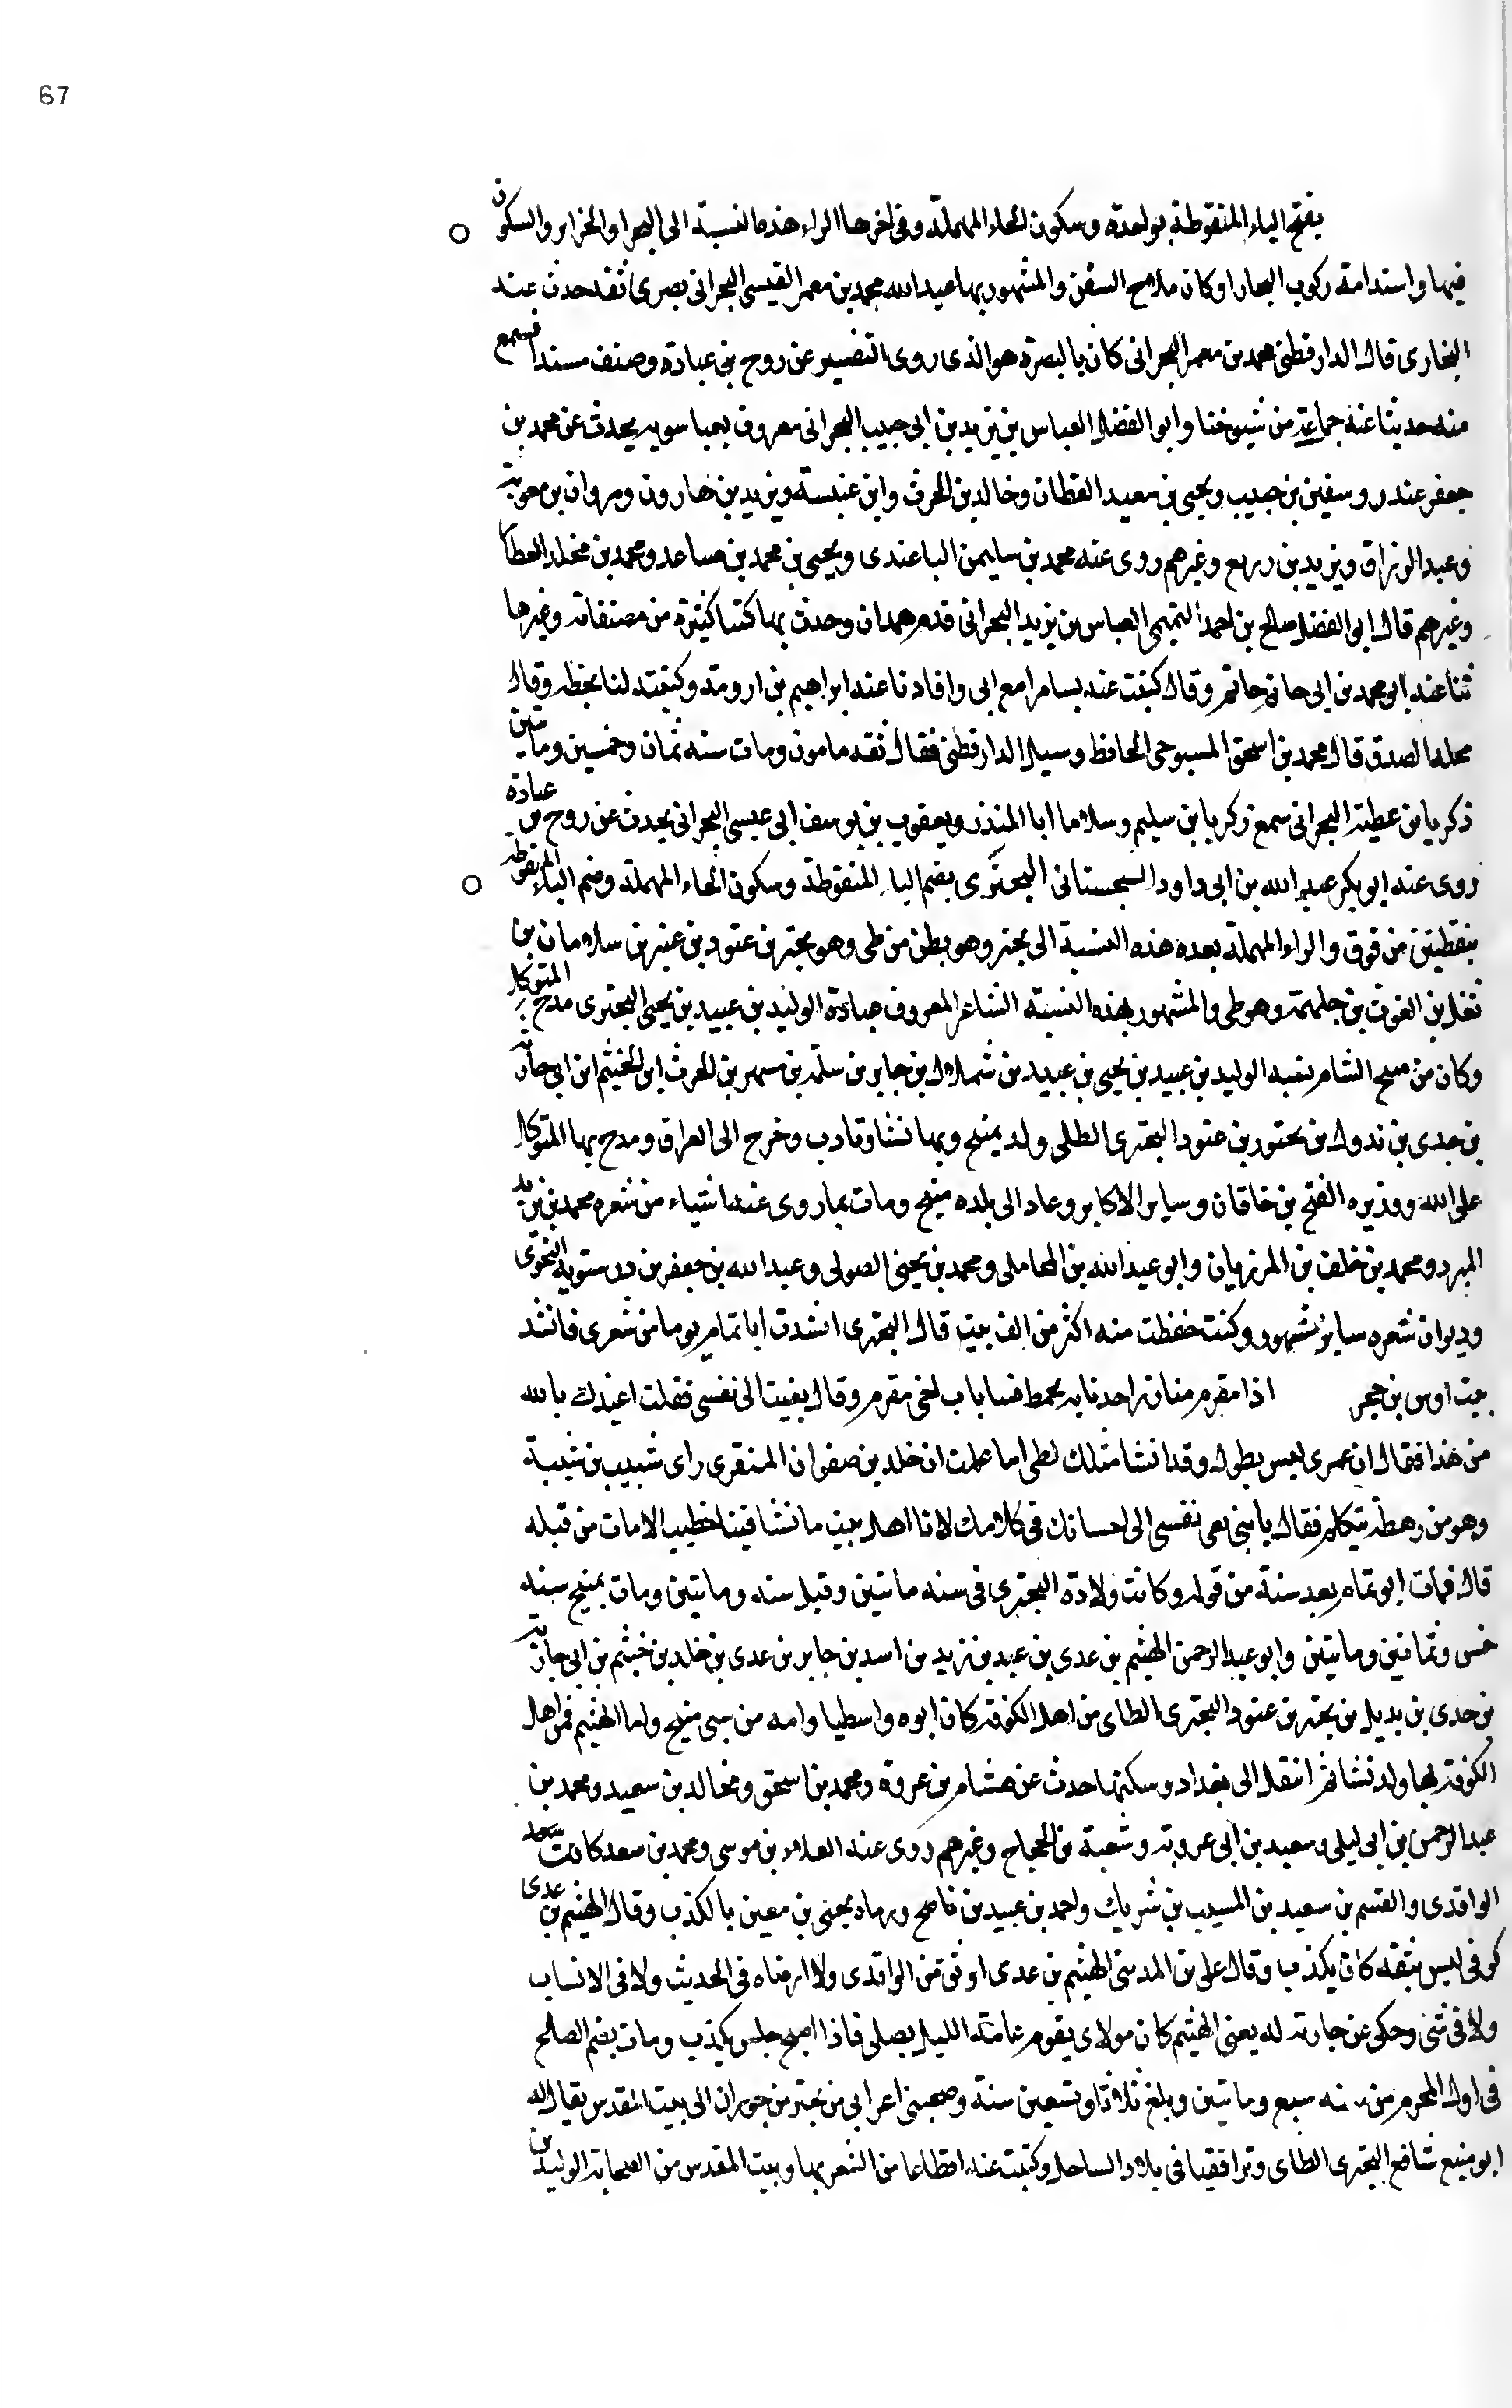 67
بفتح الباء المنقوطة بواحدة وسكون الحاء المهملة وفى اخرها الراء هذه النسبة الى البحر او الجزاير والسكون
فيها واستدامة ركوب البحار او كان ملاح السفن والمشهور بها عبد الله محمد بن معمر القيسى البحرانى بصرى ثقه حدث عنه
البخارى قال الدارقطنى محمد بن معمر البحرانى كان بالبصرة هو الذى روى التفسير عن روح بن عبادة وصنف مسندا فسمع
منه حدثنا عنه جماعة من شيوخنا وابو الفضل العباس بن يزيد بن ابى حبيب البحرانى معروف بعباسويه يحدث عن محمد بن
جعفر غندر وسفين بن حبيب ويحيى بن سعيد القطان وخالد بن الحرث وابن عنبسة ويزيد بن هارون ومروان بن معوية
وعبد الرزاق ويزيد بن زريع وغيرهم روى عنه محمد بن سليمن الباغندى ويحيى بن محمد بن صاعد ومحمد بن مخلد العطار
وغيرهم قال ابو الفضل صالح بن احمد التميمى العباس بن يزيد البحرانى قدم همدان وحدث بها كتبا كثيرة من مصنفاته وغيرها
ثنا عنه ابو محمد بن ابى حاتم وقال كتبت عنه بسامرا مع ابى وافادنا عنه ابراهيم بن ارومة وكتبته لنا بخطه وقال
محله الصدق قال محمد بن اسحق المسوحى الحافظ وسيل الدارقطنى فقال ثقه مامون ومات سنه ثمان وخمسين ومائتين
زكريا بن عطية البحرانى سمع زكريا بن سليم وسلاما ابا المنذر ويعقوب بن يوسف ابى عيسى البحرانى يحدث عن روح بن عبادة
روى عنه ابو بكر عبد الله بن ابى داود السجستانى البحترى بضم الباء المنقوطة وسكون الحاء المهملة وضم التاء المنقوطه
بنقطتين من فوق والراء المهملة بعده هذه النسبة الى بحتر وهو بطن من طى وهو بحتر بن عتود بن عنز بن سلامان بن
ثعل بن الغوث بن جلهمة وهو طى والمشهور بهذه النسبة الشاعر المعروف ابو عبادة الوليد بن عبيد بن يحيى البحترى مدح المتوكل
وكان من منبج الشام نسبه الوليد بن عبيد بن يحيى بن عبيد بن شملال بن جابر بن سلمه بن مسهر بن الحرث بن الخيثم ابن ابى حارثه
بن جدى بن تدول بن بحتر بن عتود البحترى الطائى ولد بمنبج وبها نشا وتادب وخرج الى العراق ومدح بها المتوكل
على الله ووزيره الفتح بن خاقان وساير الاكابر وعاد الى بلده منبج ومات بها روى عنه اشياء من شعره محمد بن يزيد
المبرد ومحمد بن خلف بن المرزبان وابو عبد الله بن المحاملى ومحمد بن يحيى الصولى وعبد الله بن جعفر بن درستويه النحوى
وديوان شعره ساير مشهور وكنت حفظت منه اكثر من الف بيت قال البحترى انشدت ابا تمام يوما من شعرى فانشد
بيت اوس بن حجر اذا مقرم منا ذرا حد نابه تخمط فينا ناب اخر مقرم وقال نعيت الى نفسى فقلت اعيذك بالله
من هذا فقال ان عمرى ليس بطول وقد نشا مثلك لطى اما علمت ان خلد بن صفوان المنقرى راى شبيب بن شيبة
وهو من رهطه يتكلم فقال يا بنى نعى نفسى الى احسانك فى كلامك لانا اهل بيت ما نشا فينا خطيب الا مات من قبله
قال فمات ابو تمام بعد سنة من قوله وكانت ولادة البحترى فى سنه مائتين وقيل سنه ومايتين ومات بمنبج سنه
خمس وثمانين ومايتين وابو عبد الرحمن الهيثم بن عدى بن عبد بن زيد بن اسد بن جابر بن عدى بن خلد بن خيثم بن ابى حارثه
بن جدى بن بديل بن بحتر بن عتود البحترى الطاى من اهل الكوفه كان ابوه واسطيا وامه من سبى منبج واما الهيثم فمن اهل
الكوفه بها ولد ونشا ثم انتقل الى بغداد وسكنها حدث عن هشام بن عروة ومحمد بن اسحق ومجالد بن سعيد ومحمد بن
عبد الرحمن بن ابى ليلى وسعيد بن ابى عروبه وشعبة بن الحجاج وغيرهم روى عنه العلاء بن موسى ومحمد بن سعد كاتب
الواقدى والقسم بن سعيد بن المسيب بن شريك واحمد بن عبيد بن ناصح ورماه يحيى بن معين بالكذب وقال الهيثم بن عدى
كوفى ليس بثقه كان يكذب وقال على بن المدينى الهيثم بن عدى اوثق من الواقدى ولا ارضاه فى الحديث ولا فى الانساب
ولا فى شى وحكى عن جاريه له يعنى الهيثم كان مولاى يقوم عامة الليل يصلى فاذا اصبح جلس يكذب ومات بفم الصلح
فى اول المحرم من سنه سبع ومايتين وبلغ ثلاثا وتسعين سنة وصحبنى اعرابى من بحتر من حوران الى بيت المقدس يقال له
ابو منيع شافع البحترى الطاى وترافقنا فى بلاد الساحل وكتبت عنه اقطاعا من الشعر بها وبيت المقدس من الصحابة الوليد بن